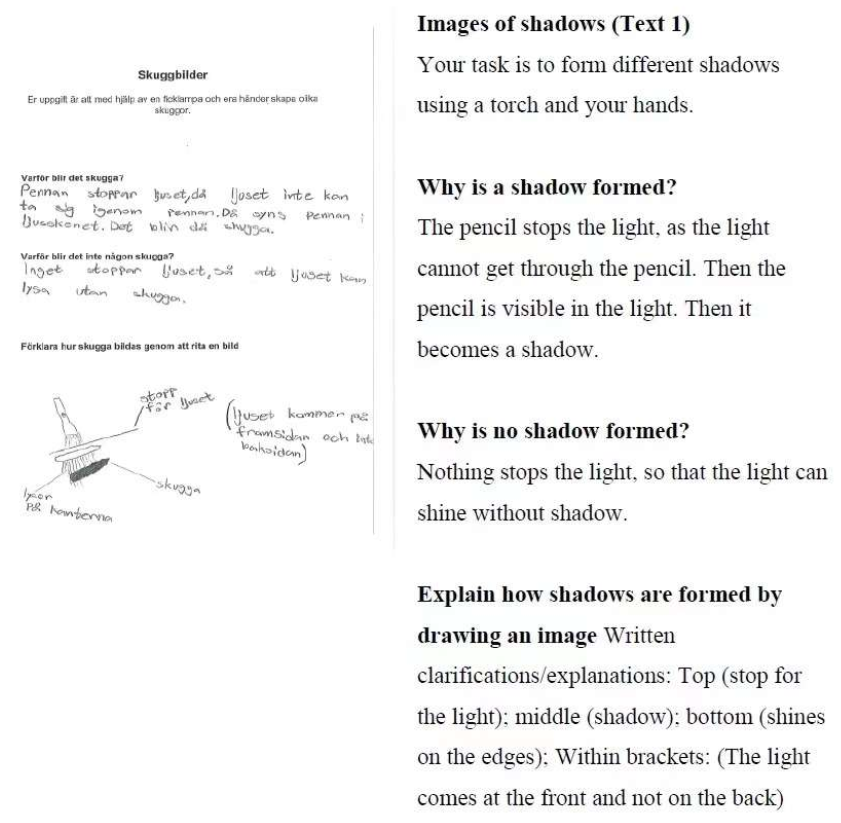 Skuggbilder
Er uppgift är att med hjälp av en ficklampa och era händer skapa olika
skuggor.
Varför blir det skugga?
Pennan stoppar ljuset, då ljuset inte kan
ta sig igenom pennan. Då syns pennan i
ljusskenet. Det blir då skugga.
Varför blir det inte någon skugga?
Inget stoppar ljuset, så att ljuset kan
lysa utan skugga.
Förklara hur skugga bildas genom att rita en bild
stopp
för ljuset
(ljuset kommer på
framsidan och inte
baksidan)
skugga
lyser
på kanterna
Images of shadows (Text 1)
Your task is to form different shadows
using a torch and your hands.
Why is a shadow formed?
The pencil stops the light, as the light
cannot get through the pencil. Then the
pencil is visible in the light. Then it
becomes a shadow.
Why is no shadow formed?
Nothing stops the light, so that the light can
shine without shadow.
Explain how shadows are formed by
drawing an image Written
clarifications/explanations: Top (stop for
the light); middle (shadow); bottom (shines
on the edges); Within brackets: (The light
comes at the front and not on the back)